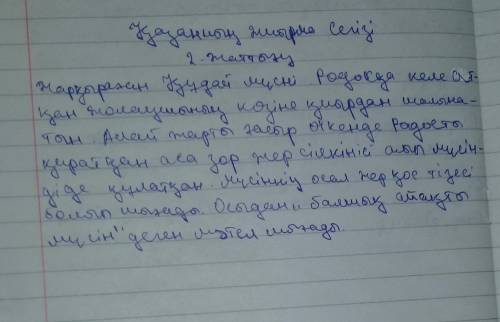 Қазанның жиырма сегізі
2-жаттығу
Жарқыраған Құдай мүсіні Родосқа келе жат-
қан жолаушының көзіне қиырдан шалына-
тын. Алай жарты ғасыр өткенде Родосты
қиратқан аса зор жер сілкінісі алып мүсін-
ді де құлатқан. Мүсіннің осал жері қос тізесі
болып шығады. Осыдан "балшық атақты
мүсін" деген мәтел шығады.